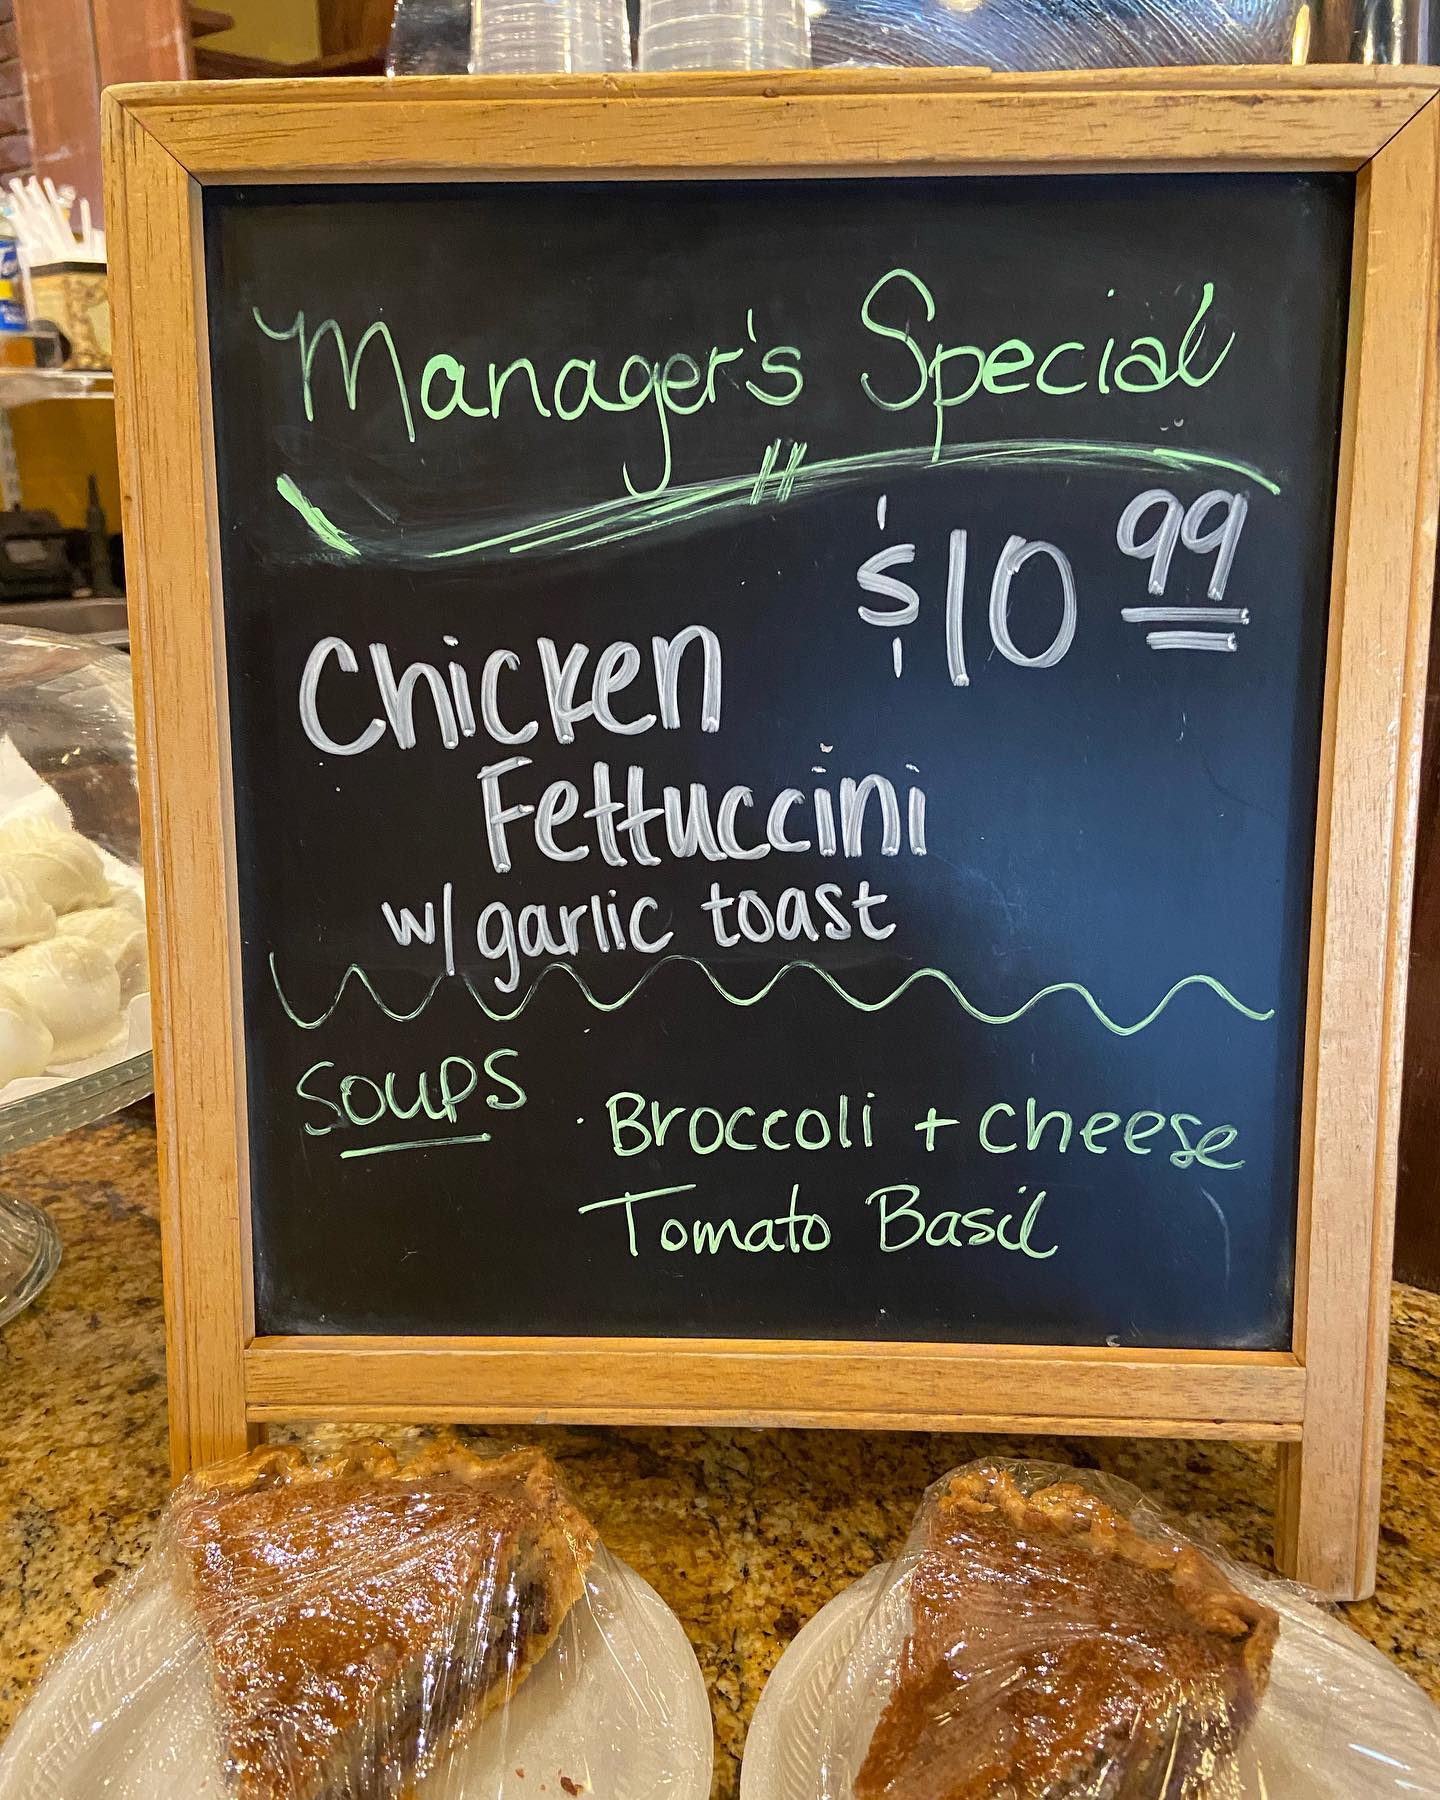 Manager's Special
$10 99
Chicken
Fettuccini
w/ garlic toast
Soups
· Broccoli + cheese
Tomato Basil